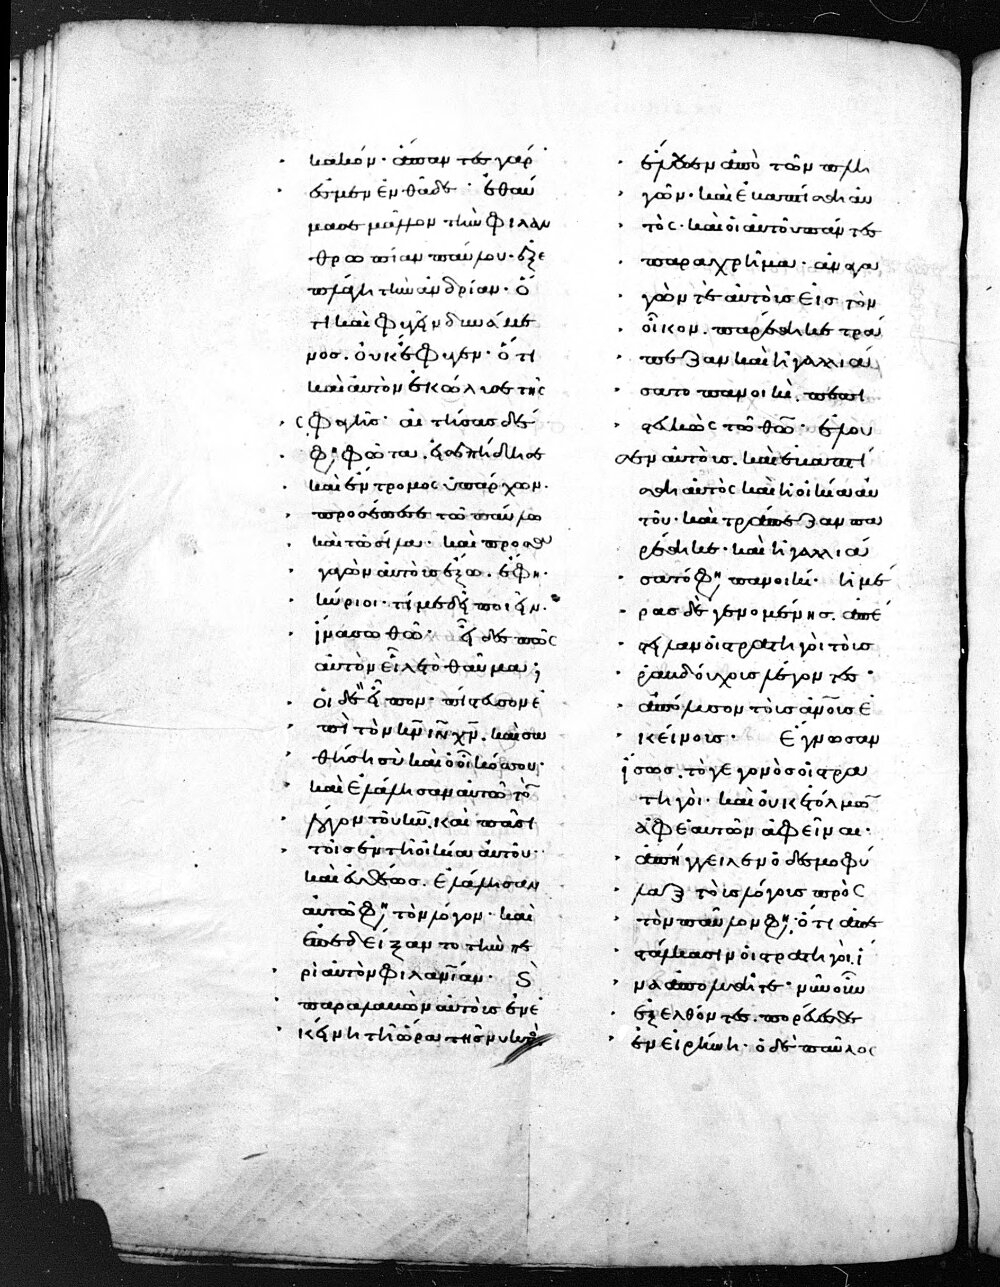 κακόν· ἅπαντες γάρ
ἐσμεν ἐνθάδε· ἐθαύ
μασε μᾶλλον τὴν φιλαν
θρωπίαν παύλου· ἐξε
πλάγη τὴν ἀνδρίαν· ὅ
τι καὶ φυγεῖν δυνάμε
νος. οὐκ ἔφυγεν· ὅτι
καὶ αὐτὸν ἐκώλυσε τῆς
σφαγῆς· αἰτήσας δέ
φη φῶτα. εἰσεπήδησε
καὶ ἔντρομος ὑπάρχων.
προσέπεσε τῶ παύλω
καὶ τῶ σίλα· καὶ προσα
γαγὼν αὐτοὺς ἔξω. ἔφη·
κύριοι· τί με δεῖ ποιεῖν.
ἵνα σωθῶ· εἶδε πῶς
αὐτὸν εἷλε τὸ θαῦμα;
οἱ δὲ εἶπον· πίστευσον ἐ
πὶ τὸν κν̅ ιν̅ χν̅. καὶ σω
θήση σὺ καὶ ὁ οἶκός σου·
καὶ ἐλάλησαν αὐτῶ τὸν
λόγον τοῦ κυ̅. καὶ πᾶσι
τοῖς ἐν τῆ οἰκία αὐτοῦ·
καὶ εὐθέως. ἐλάλησαν
αὐτῶ φη τὸν λόγον· καὶ
ἐπεδείξαντο τὴν πε
ρὶ αὐτὸν φιλανίαν· Ϛ
παραλαβὼν αὐτοὺς ἐν ἐ
κείνη τῆ ὥρα τῆς νυκτὸς
ἔλουσεν ἀπὸ τῶν πλη
γῶν· καὶ ἐβαπτίσθη αὐ
τὸς· καὶ οἱ αὐτοῦ πάντες
παραχρῆμα· ἀναγα
γών τε αὐτοὺς εἰς τὸν
οἶκον. παρέθηκε τρά
πεζαν καὶ ἠγαλλιά
σατο πανοικὶ. πεπι
στευκὼς τῶ θῶ· ἔλου
σεν αὐτοὺς. καὶ ἐβαπτί
σθη αὐτὸς καὶ ἡ οἰκία αὐ
τοῦ· καὶ τράπεζαν πα
ρέθηκε· καὶ ἠγαλλιά
σατό φη πανοικί· ἡμέ
ρας δὲ γενομένης. ἀπέ
στειλαν οἱ στρατηγοὶ τοὺς
ῥαβδούχους λέγοντες·
ἀπόλυσον τοὺς ἀνους ἐ
κείνους· ἔγνωσαν
ἴσως. τὸ γεγονὸς οἱ στρα
τηγοὶ· καὶ οὐκ ἐτόλμων
ἀφ' ἑαυτῶν ἀφεῖναι·
ἀπήγγειλεν ὁ δεσμοφύ
λαξ τοὺς λόγους πρὸς
τὸν παῦλον φη, ὅτι ἀπε
στάλκασιν οἱ στρατηγοὶ ἵ
να ἀπολυθῆτε· νῦν οὖν
ἐξελθόντες. πορεύεσθε
ἐν εἰρήνη· ὁ δὲ παῦλος